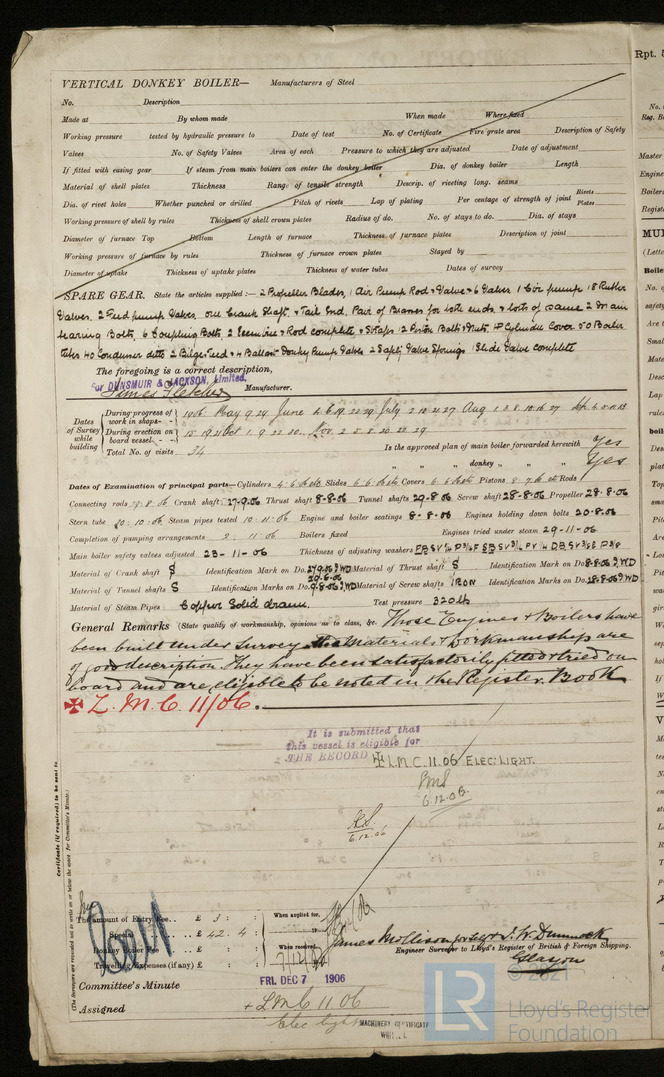 Rpt. 5
VERTICAL DONKEY BOILER— Manufacturers of Steel
No. Description
Made at By whom made When made Where fixed
Working pressure tested by hydraulic pressure to Date of test No. of Certificate Fire grate area Description of Safety
Valves No. of Safety Valves Area of each Pressure to which they are adjusted Date of adjustment
If fitted with easing gear If steam from main boilers can enter the donkey boiler Dia. of donkey boiler Length
Material of shell plates Thickness Range of tensile strength Descrip. of riveting long. seams
Dia. of rivet holes Whether punched or drilled Pitch of rivets Lap of plating Per centage of strength of joint Rivets Plates
Working pressure of shell by rules Thickness of shell crown plates Radius of do. No. of stays to do. Dia. of stays
Diameter of furnace Top Bottom Length of furnace Thickness of furnace plates Description of joint
Working pressure of furnace by rules Thickness of furnace crown plates Stayed by
Diameter of uptake Thickness of uptake plates Thickness of water tubes Dates of survey
SPARE GEAR. State the articles supplied:— 2 Propeller Blades, 1 Air Pump Rod & Valve & 6 Valves 1 Cir pump 18 Rubber
Valves. 2 Feed pump Valves, one Crank Shaft, & Tail End, Pair of Brasses for both ends & bolts of same 2 Main
bearing Bolts, 6 Coupling Bolts, 2 Eccentric & Rod complete & Straps 12 Piston Bolts & Nuts, HP Cylinder Cover 50 Boiler
tubes 40 Condenser ditto 2 Bilge Feed & 4 Ballast Donkey Pump Valves 2 Safety Valve Springs 1 Slide Valve complete
The foregoing is a correct description,
For DUNSMUIR & JACKSON, Limited.
James Fletcher Manufacturer.
Dates of Survey while building
During progress of work in shops- - 1906 May 9 24 June 4 6 19 22 29 July 2 12 24 27 Aug 1 3 8 10 16 27 Sep 4 5 11 13
During erection on board vessel- - - 15 19 21 Oct 1 9 22 30 Nov 2 5 8 20 23 29
Total No. of visits 34 Is the approved plan of main boiler forwarded herewith Yes
" " donkey " " Yes
Dates of Examination of principal parts—Cylinders Slides Covers Pistons Rods
Connecting rods Crank shaft 27-9-06 Thrust shaft 8-8-06 Tunnel shafts 29-8-06 Screw shaft 28-8-06 Propeller 28-8-06
Stern tube 10:10:06 Steam pipes tested 10:11:06 Engine and boiler seatings 8-8-06 Engines holding down bolts 20-8-06
Completion of pumping arrangements 2:11:06 Boilers fixed Engines tried under steam 29-11-06
Main boiler safety valves adjusted 23-11-06 Thickness of adjusting washers
Material of Crank shaft S Identification Mark on Do. 27.9.06 JWD Material of Thrust shaft S Identification Mark on Do. 8-8-06 JWD
Material of Tunnel shafts S Identification Marks on Do. 29-8-06 JWD Material of Screw shafts IRON Identification Marks on Do. 28-8-06 JWD
Material of Steam Pipes Copper Solid drawn. Test pressure 320 lb
General Remarks (State quality of workmanship, opinions as to class, &c. These Engines & Boilers have
been built under Survey the Materials & workmanship are
of good description. They have been satisfactorily fitted & tried on
board and are eligible to be noted in the Register Book
✠ L.M.C. 11/06.
It is submitted that
this vessel is eligible for
THE RECORD ✠ L.M.C. 11.06 ELEC: LIGHT.
6.12.06.
6.12.06
Certificate (if required) to be sent to
(The Surveyors are requested not to write on or below the space for Committee's Minute.)
The amount of Entry Fee.. £ 3 : : When applied for,
Special £ 42. 4 :
Donkey Boiler Fee £ : : When received,
Travelling Expenses (if any) £ : :
James Mollison for self & J. W. Dimmock
Engineer Surveyor to Lloyd's Register of British & Foreign Shipping.
Glasgow
Committee's Minute FRI. DEC 7 1906
Assigned + LMC 11 06
Elec light
MACHINERY CERTIFICATE
© 2021
LR
Lloyd's Register
Foundation